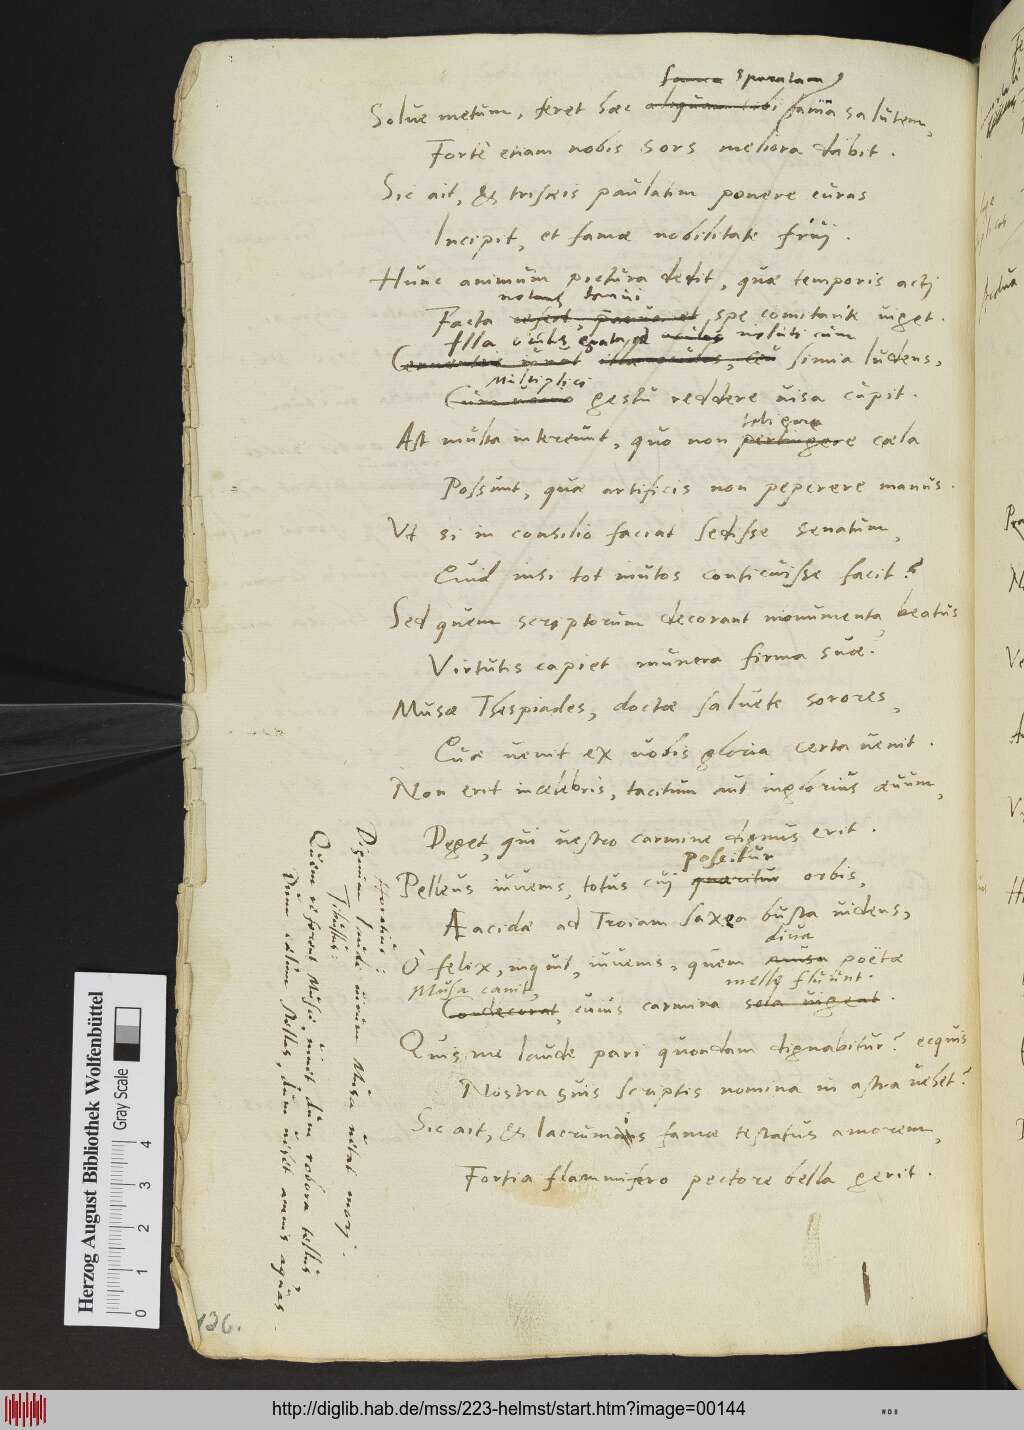 fama speratam
Solue metum, feret haec aliquam tibi fama salutem,
Forte etiam nobis sors meliora dabit.
Sic ait, & tristeis paulatim ponere curas
Incipit, et famae nobilitate frui.
Hunc animum pictura dedit, quae temporis acti
notans
Facta spe comitante uiget.
Illa ueluti cum
simia ludens,
Multiplici
gestu reddere uisa cupit.
tetigere
Ast multa intereunt, quo non pertingere caela
Possunt, quae artificis non peperere manus.
Vt si in consilio faciat sedisse senatum,
Quid nisi tot mutos conticuisse facit?
Sed quem scriptorum decorant monumenta, beatus
Virtutis capiet munera firma suae.
Musae Thespiades, doctae saluete sorores,
Quae uenit ex uobis gloria certa uenit.
Non erit incelebris, tacitum aut inglorius aeuum,
Deget, qui uestro carmine dignus erit.
poscitur
Pelleus iuuenis, totus cui quaeritur orbis,
Aeacidae ad Troiam saxea busta uidens,
diua
O felix, inquit, iuuenis, quem musa poëtae
Musa canit, melle fluunt.
Condecorat, cuius carmina sola uigent.
Quis me laude pari quondam dignabitur? ecquis
Nostra suis scriptis nomina in astra uehet?
Sic ait, & lacrumis famae testatus amorem,
Fortia flammifero pectore bella gerit.
Horatius:
Dignum laude uirum Musa uetat mori.
Tibullus:
Quem referent Musae, uiuet dum robora tellus
Dum caelum stellas, dum uehet amnis aquas.
136.
Herzog August Bibliothek Wolfenbüttel
Gray Scale
0 1 2 3 4
http://diglib.hab.de/mss/223-helmst/start.htm?image=00144